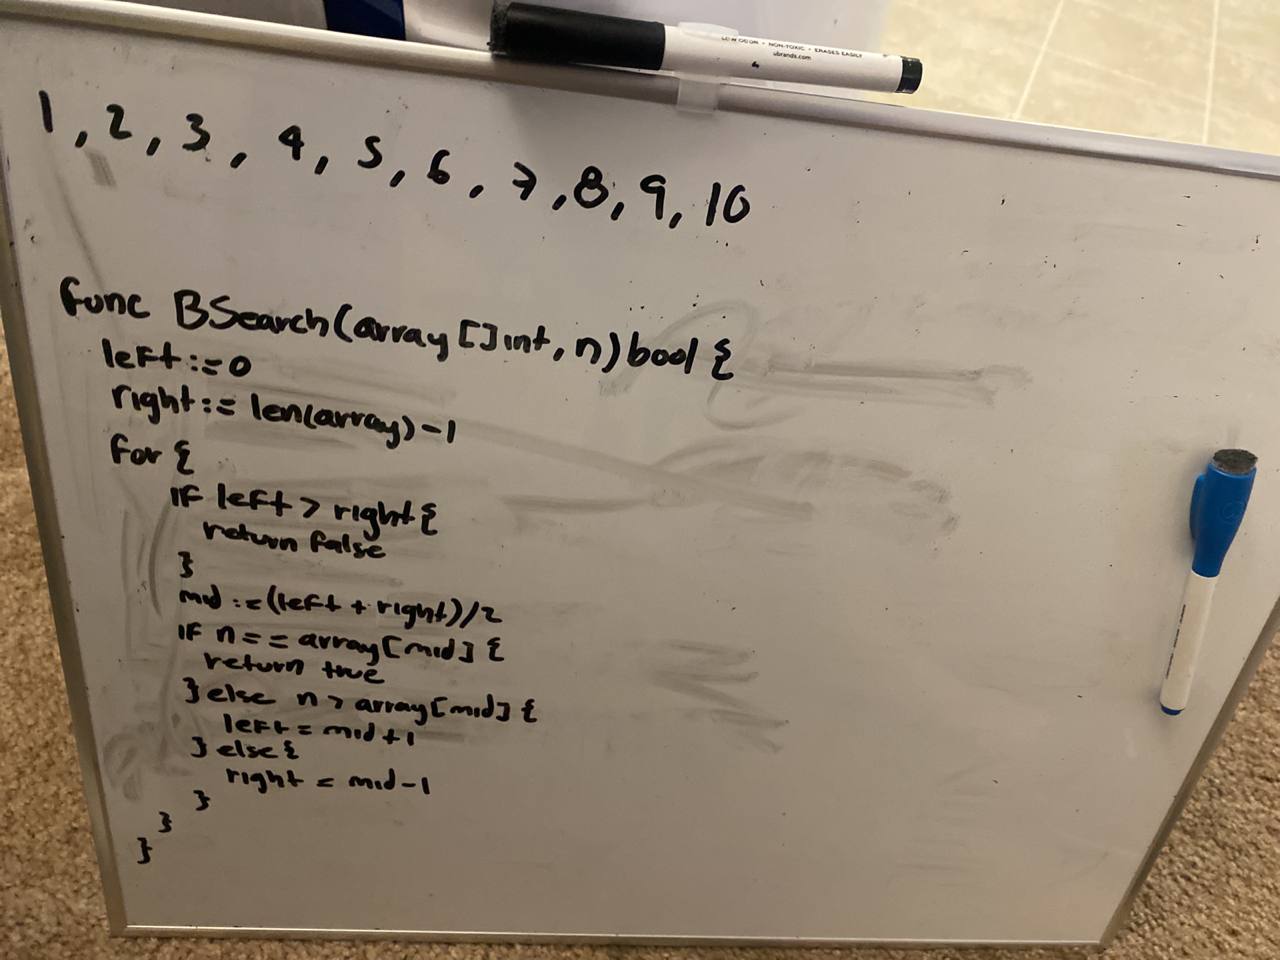 LOW ODOR • NON-TOXIC • ERASES EASILY
ubrands.com
1, 2, 3, 4, 5, 6, 7, 8, 9, 10
func BSearch(array []int, n) bool {
left := 0
right := len(array) - 1
for {
if left > right {
return false
}
mid := (left + right)/2
if n == array[mid] {
return true
} else n > array[mid] {
left = mid + 1
} else {
right = mid - 1
}
}
}